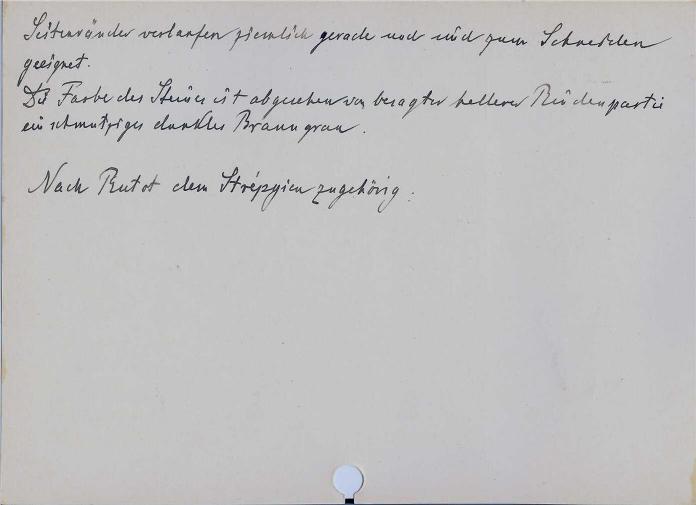 Seitenränder verlaufen ziemlich gerade und sind zum Schneiden
geeignet.
Die Farbe des Steines ist abgesehen von besagter hellerer Rückenpartie
ein schmutziges dunkles Braungrau.
Nach Rutot dem Strépyien zugehörig.